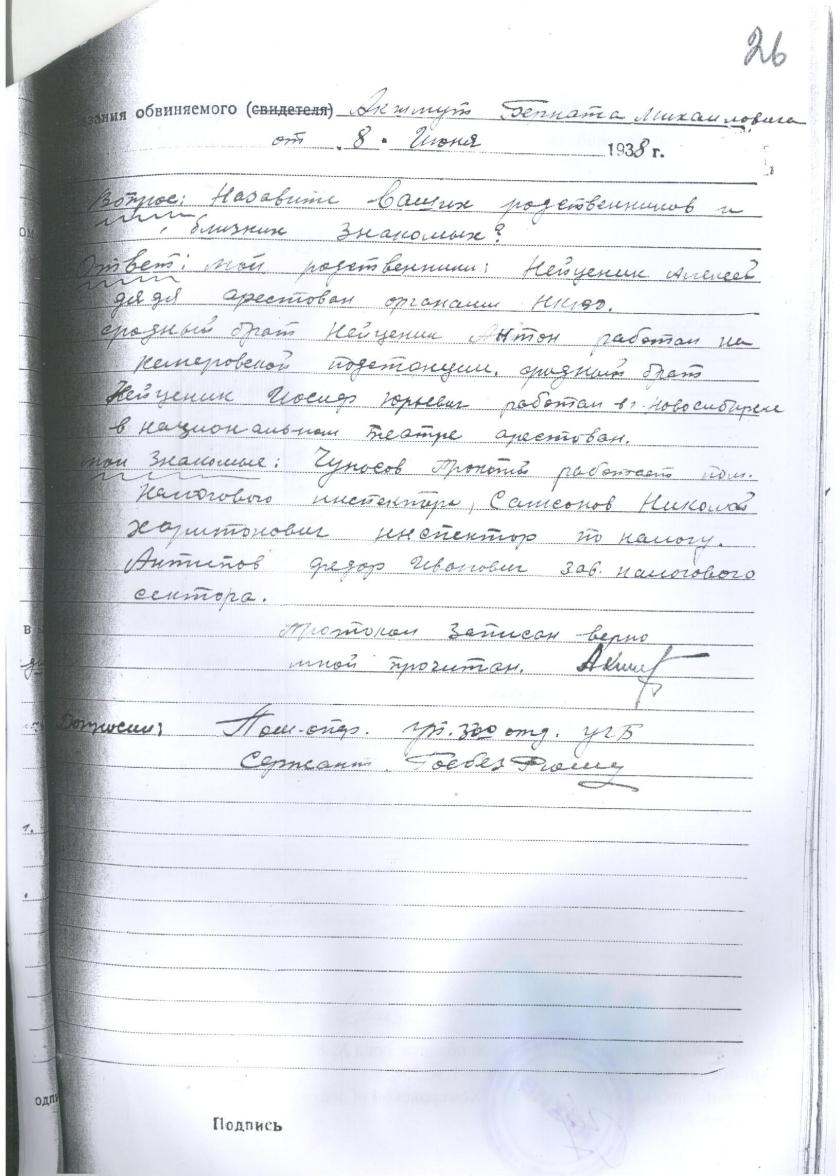 26
зания обвиняемого (свидетеля) Акжмут Берната Михаиловича
от 8 Июня 1938 г.
Вопрос: Назовите Ваших родственников и
близких знакомых?
Ответ: мои родственники: Нейценик Алексей
дядя арестован органами НКВД.
сродный брат Нейценик Антон работал на
кемеровской подстанции. сродный брат
Нейценик Иосиф Юрьевич работал в г. Новосибирске
в национальном театре арестован.
мои знакомые: Чуносов Прокотий работает пом.
налогового инспектора, Самсонов Николай
Харитонович инспектор по налогу.
Антипов Федор Иванович зав. налогового
сектора.
Протокол записан верно
мной прочитан.
Допросил: Пом. опер. уп. отд. УГБ
Сержант Госбез
Подпись